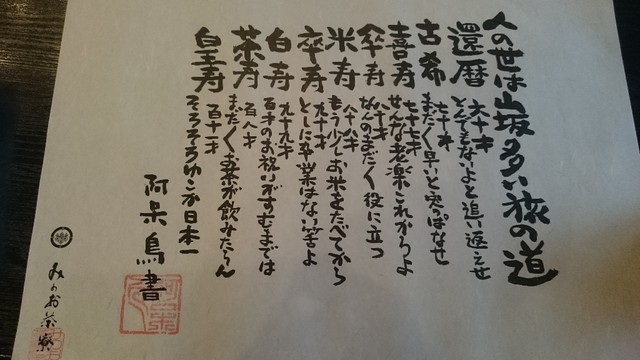 人の世は山坂多い旅の道
還暦 六十才 とんでもないよと追い返えせ
古希 七十才 まだまだ早いと突っぱなせ
喜寿 七十七才 せくな老楽これからよ
傘寿 八十才 なんのまだまだ役に立つ
米寿 八十八才 もう少しお米をたべてから
卒寿 九十才 とに卒業はない筈よ
白寿 九十九才 百才のお祝いがすむまでは
茶寿 百八才 まだまだお茶が飲みたらん
皇寿 百十一才 そろそろゆこか日本一
阿呆鳥書
お茶寮